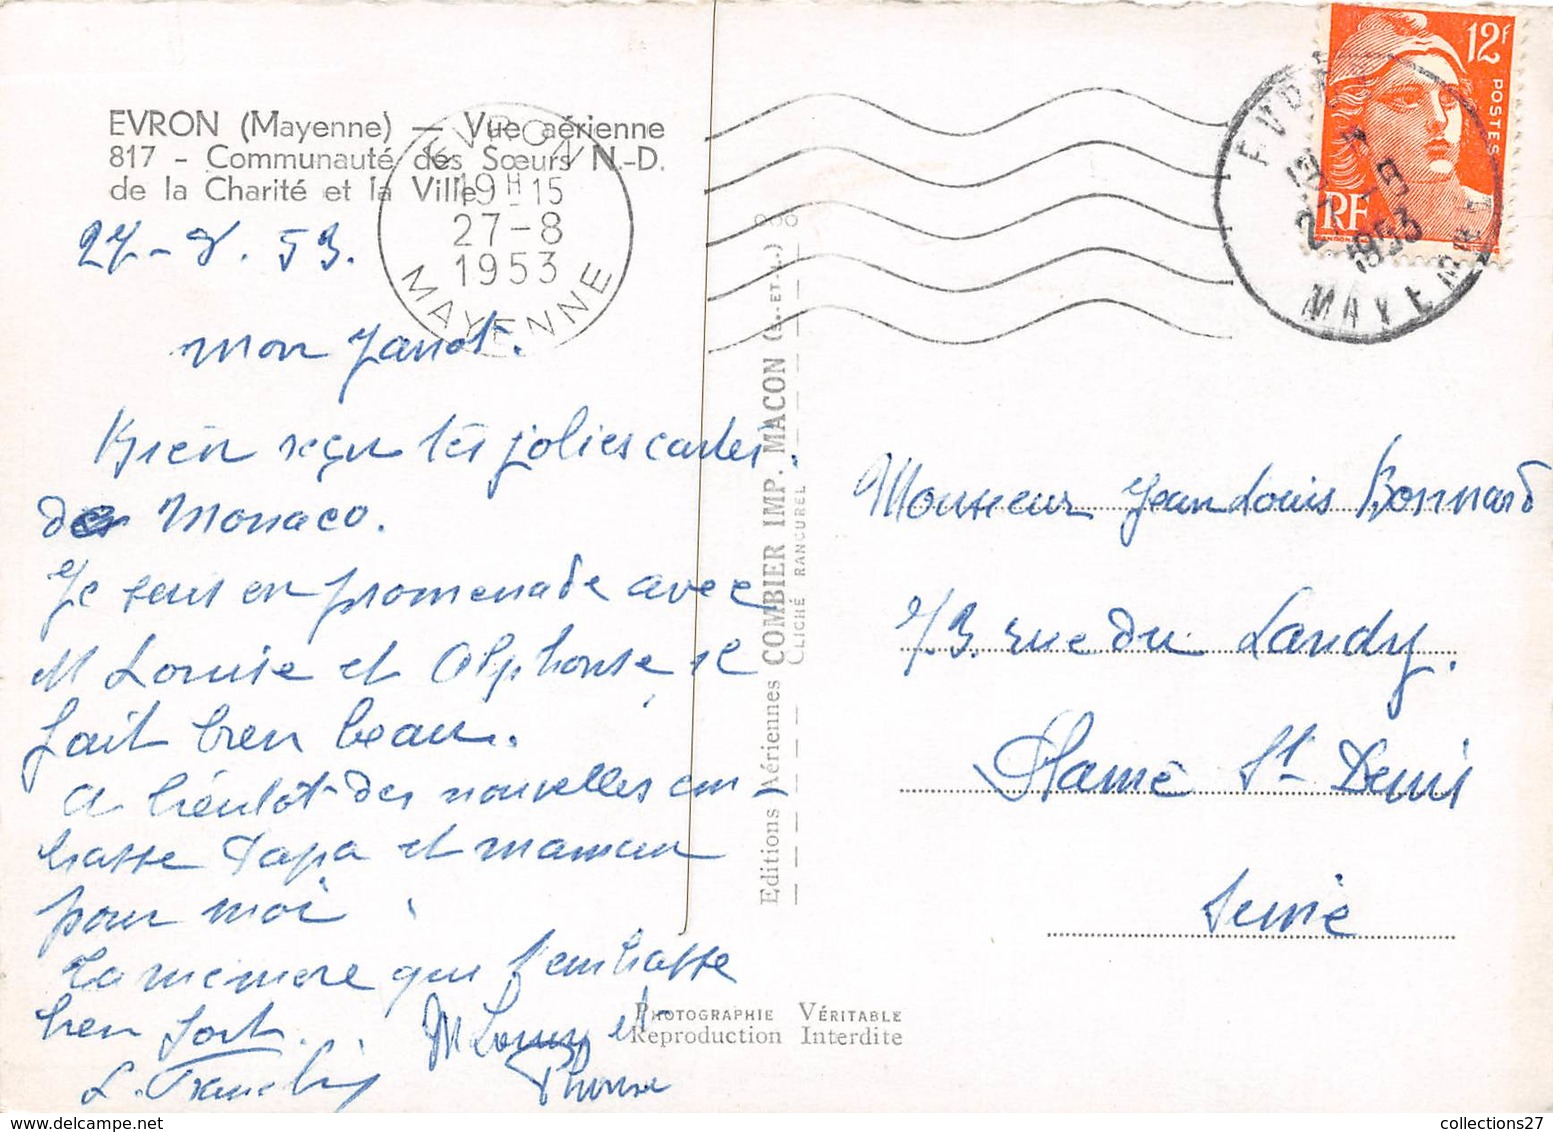 EVRON (Mayenne) — Vue aérienne
817 - Communauté des Sœurs N.-D.
de la Charité et la Ville
EVRON
19H-15
27-8
1953
MAYENNE
12F
POSTES
RF
EVRON
27
1953
MAYENNE
27-8.53.
mon Janot.
Bien reçu tes jolies cartes.
de Monaco.
Je suis en promenade avec
M Louise et Alphonse, il
fait bien beau.
a bientôt des nouvelles em
brasse Papa et maman
pour moi.
Ta mémere qui t'embrasse
bien fort.
M Louise et
Phonse
Editions Aériennes COMBIER IMP. MACON (S.-ET-L.)
CLICHÉ RANCUREL
Monsieur Jean Louis Bonnard
73. rue du Landy.
Plaine St Denis
Seine
PHOTOGRAPHIE VÉRITABLE
Reproduction Interdite
collections27